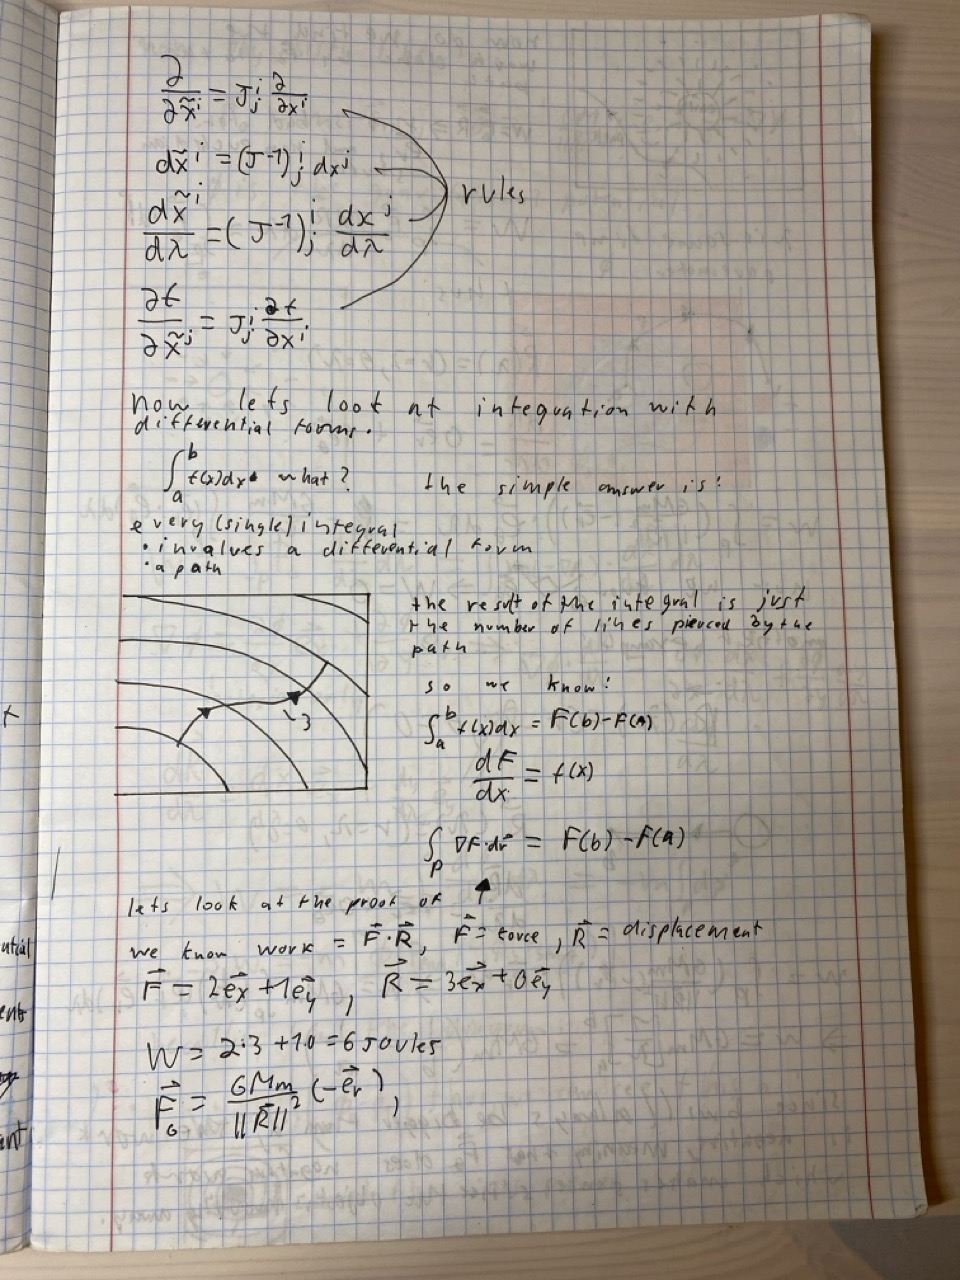 ∂/∂x̃ʲ = Jⁱⱼ ∂/∂xⁱ
dx̃ⁱ = (J⁻¹)ⁱⱼ dxʲ
rules
dx̃ⁱ/dλ = (J⁻¹)ⁱⱼ dxʲ/dλ
∂f/∂x̃ʲ = Jⁱⱼ ∂f/∂xⁱ
now lets look at integuation with
differential forms.
∫ₐᵇ f(x)dx • what? the simple answer is:
every (single) integral
• invalves a differential form
• a path
the result of the integral is just
the number of lines pierced by the
path
3
so we know:
∫ₐᵇ f(x)dx = F(b)-F(a)
dF/dx = f(x)
∫ₚ ∇F·dr⃗ = F(b)-F(a)
lets look at the proof of ↑
we know work = F⃗·R⃗, F⃗ = force, R⃗ = displacement
F⃗ = 2e⃗x + 1e⃗y, R⃗ = 3e⃗x + 0e⃗y
W = 2·3 + 1·0 = 6 Joules
F⃗_G = GMm/||R⃗||² (-e⃗r),